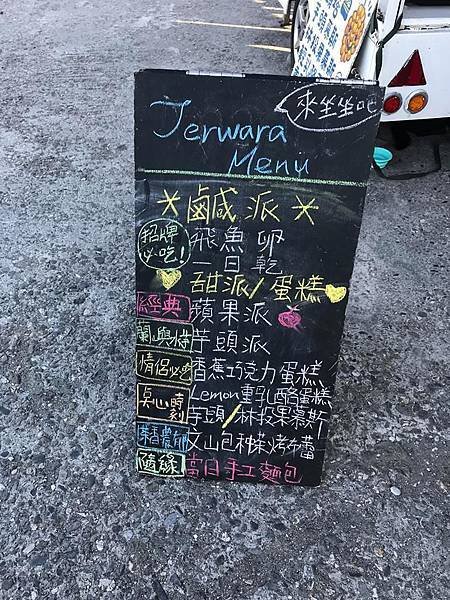 來坐坐吧
Jerwara
Menu
*鹹派*
招牌必吃! 飛魚卵
一日乾
甜派/蛋糕
經典 蘋果派
蘭嶼特 芋頭派
情侶必吃 香蕉巧克力蛋糕
點心時刻 Lemon重乳酪蛋糕
芋頭/林投果慕斯
隨緣 當日手工麵包